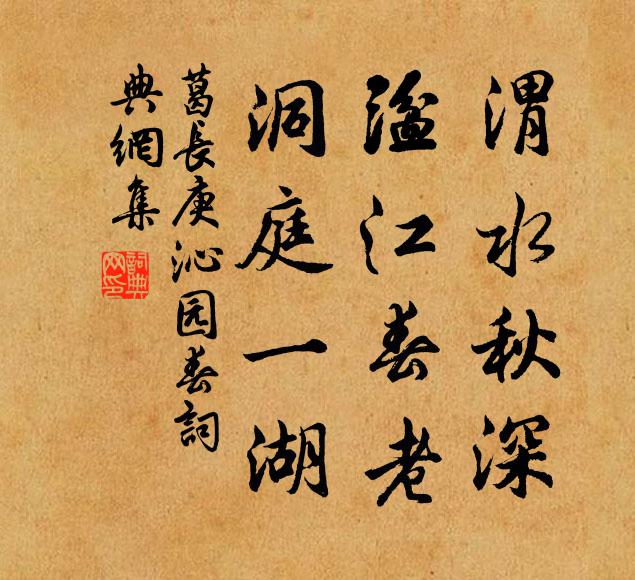 渭水秋深
湓江春老
洞庭一湖
葛長庚沁园春詞
典網集
詞典網印